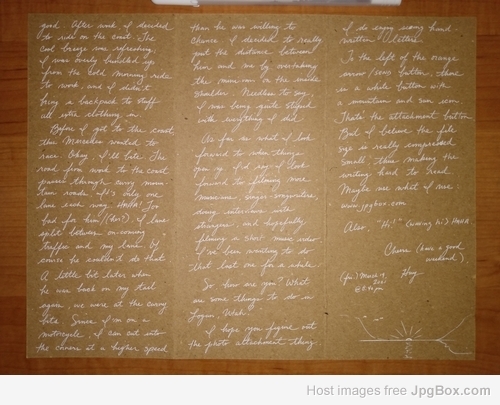 good. After work I decided
to ride on the coast. The
cool breeze was refreshing.
I was overly bundled up
from the cold morning ride
to work, and I didn't
bring a backpack to stuff
all extra clothing in.
Before I got to the coast,
this Mercedes wanted to
race. Okay. I'll bite. The
road from work to the coast
passed through curvy moun-
tain roads. It's only one
lane each way. HAHA! Too
bad for him/(her?). I lane
split between on-coming
traffic and my lane. Of
course he couldn't do that.
A little bit later when
he was back on my tail
again, we were at the curvy
bits. Since I'm on a
motorcycle, I can cut into
the corners at a higher speed
than he was willing to
chance. I decided to really
put the distance between
him and me by overtaking
the mini-van on the inside
shoulder. Needless to say,
I was being quite stupid
with everything I did.
As far as what I look
forward to when things
open up, I'd say I look
forward to filming more
musicians, singer-songwriters,
doing interviews with
strangers, and hopefully,
filming a short music video.
I've been wanting to do
that last one for a while.
So, how are you? What
are some things to do in
Logan, Utah?
I hope you figure out
the photo attachment thing.
I do enjoy seeing hand-
written letters.
To the left of the orange
arrow/send button, there
is a white button with
a mountain and sun icon.
That's the attachment button.
But I believe the file
size is really compressed
small thus making the
writing hard to read.
Maybe use what I use:
www.jpgbox.com.
Also, "Hi!" (waving hi) HAHA.
Cheers (have a good
weekend),
(fri) March 19,
2021
Host images free JpgBox.com